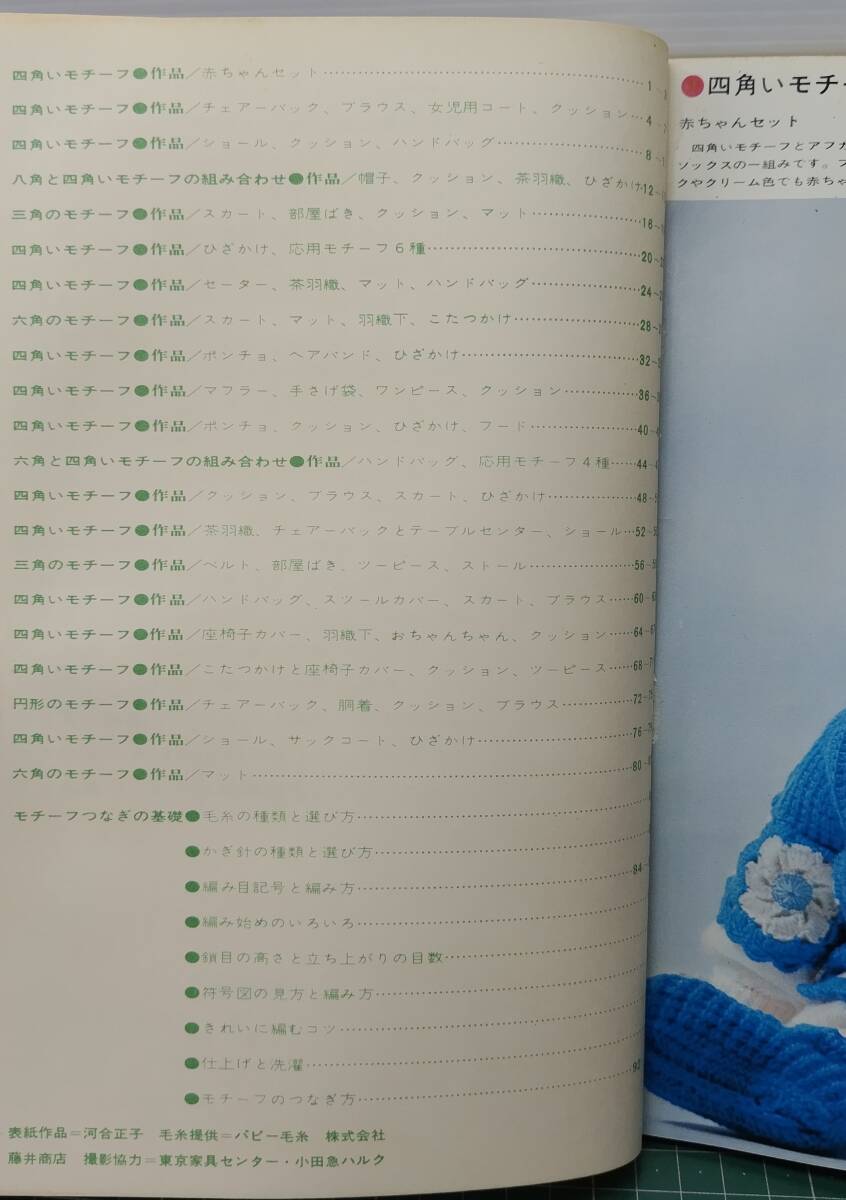 四角いモチーフ●作品／赤ちゃんセット……1~
四角いモチーフ●作品／チェアーバック、ブラウス、女児用コート、クッション…4~
四角いモチーフ●作品／ショール、クッション、ハンドバッグ……8~
八角と四角いモチーフの組み合わせ●作品／帽子、クッション、茶羽織、ひざかけ12~
三角のモチーフ●作品／スカート、部屋ばき、クッション、マット……16~
四角いモチーフ●作品／ひざかけ、応用モチーフ6種……20~
四角いモチーフ●作品／セーター、茶羽織、マット、ハンドバッグ……24~
六角のモチーフ●作品／スカート、マット、羽織下、こたつかけ……28~
四角いモチーフ●作品／ポンチョ、ヘアバンド、ひざかけ……32~
四角いモチーフ●作品／マフラー、手さげ袋、ワンピース、クッション……36~
四角いモチーフ●作品／ポンチョ、クッション、ひざかけ、フード……40~
六角と四角いモチーフの組み合わせ●作品／ハンドバッグ、応用モチーフ4種……44~
四角いモチーフ●作品／クッション、ブラウス、スカート、ひざかけ……48~
四角いモチーフ●作品／茶羽織、チェアーバックとテーブルセンター、ショール…52~
三角のモチーフ●作品／ベルト、部屋ばき、ツーピース、ストール……56~
四角いモチーフ●作品／ハンドバッグ、スツールカバー、スカート、ブラウス…60~
四角いモチーフ●作品／座椅子カバー、羽織下、おちゃんちゃん、クッション…64~
四角いモチーフ●作品／こたつかけと座椅子カバー、クッション、ツーピース…68~
円形のモチーフ●作品／チェアーバック、胴着、クッション、ブラウス……72~
四角いモチーフ●作品／ショール、サックコート、ひざかけ……76~
六角のモチーフ●作品／マット……80~
モチーフつなぎの基礎●毛糸の種類と選び方……
●かぎ針の種類と選び方……
●編み目記号と編み方……84~
●編み始めのいろいろ……
●鎖目の高さと立ち上がりの目数……
●符号図の見方と編み方……
●きれいに編むコツ……
●仕上げと洗濯……
●モチーフのつなぎ方……92
表紙作品＝河合正子　毛糸提供＝パピー毛糸　株式会社
藤井商店　撮影協力＝東京家具センター・小田急ハルク
●四角いモチ
赤ちゃんセット
四角いモチーフとアフガ
ソックスの一組みです。
クやクリーム色でも赤ちゃ